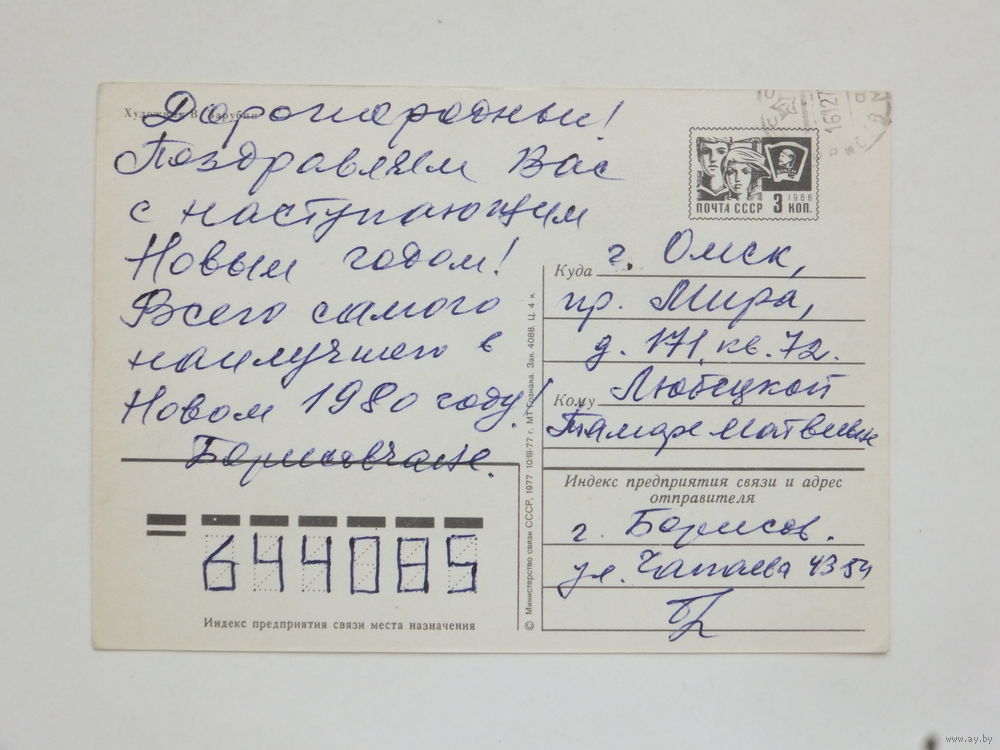 Художник В. Зарубин
Дорогие родные!
Поздравляем Вас
с наступающим
Новым годом!
Всего самого
наилучшего в
Новом 1980 году!
Борисовчане.
644085
Индекс предприятия связи места назначения
© Министерство связи СССР, 1977 10/III-77 г. МТ Гознака. Зак. 4088. Ц. 4 к.
ПОЧТА СССР 3 КОП. 1966
Куда г. Омск,
пр. Мира,
д. 171, кв. 72.
Кому Любецкой
Тамаре Матвеевне
Индекс предприятия связи и адрес
отправителя
г. Борисов.
ул. Чапаева 43
www.ay.by